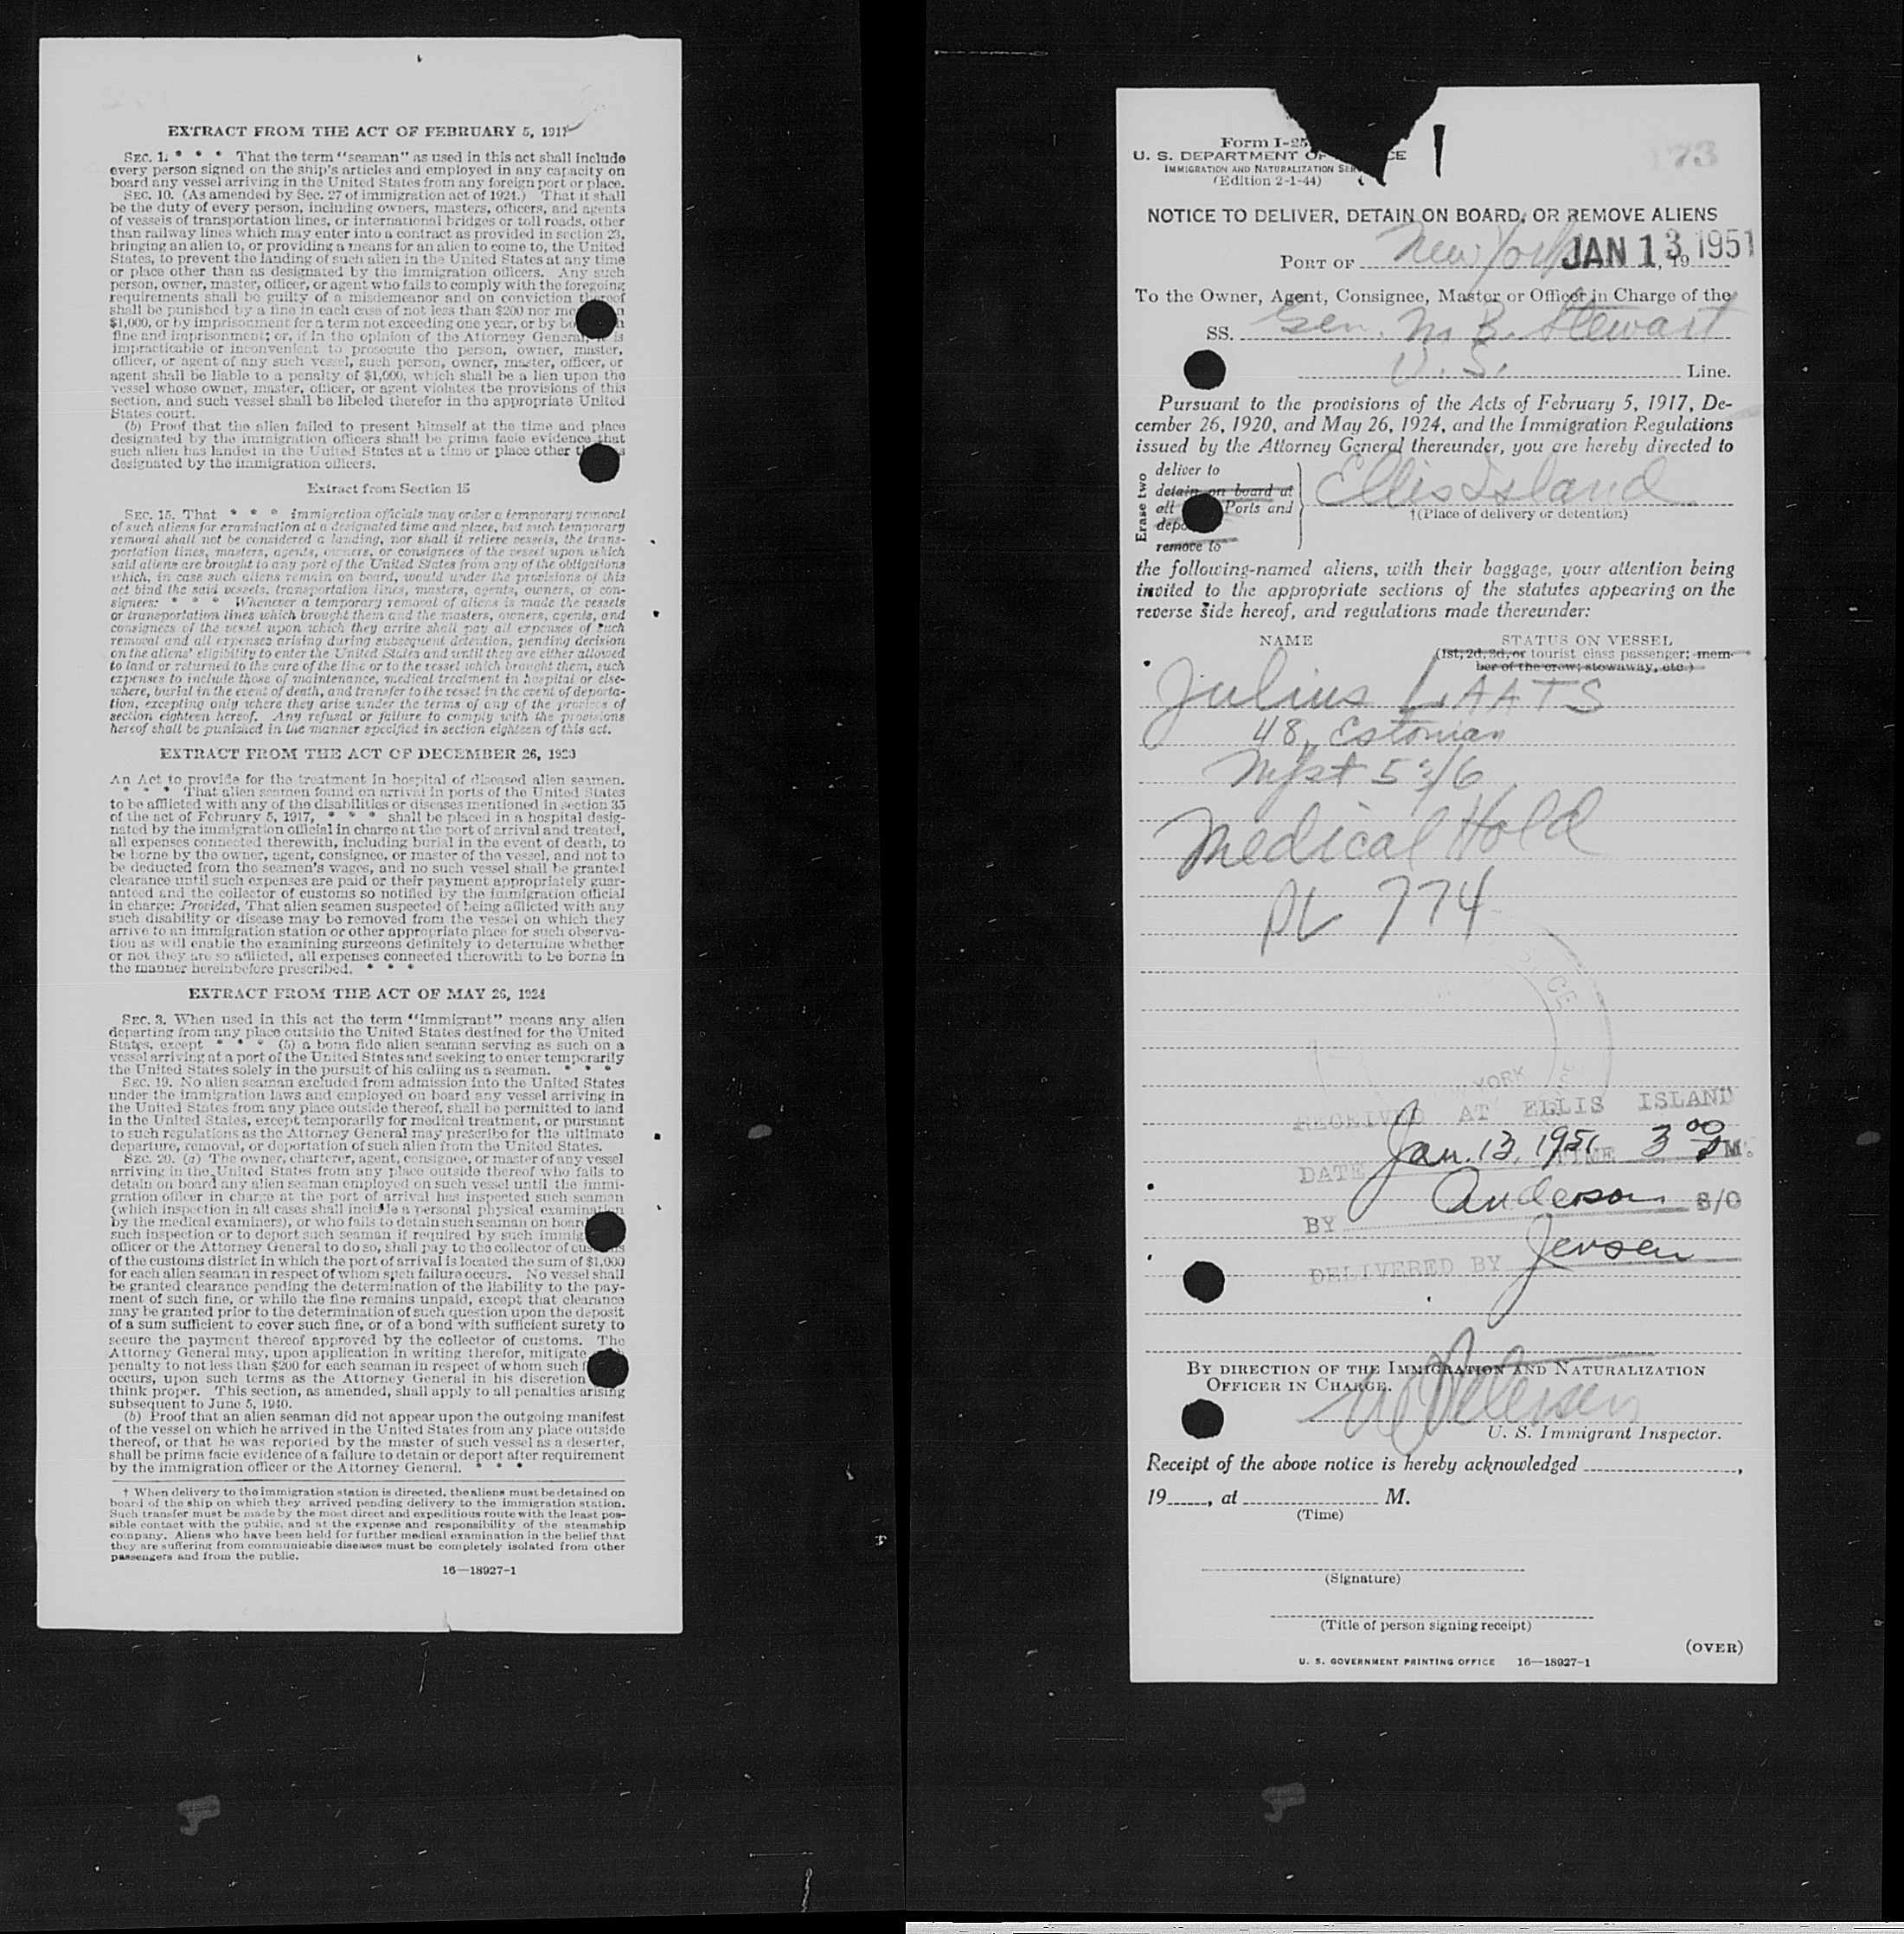 EXTRACT FROM THE ACT OF FEBRUARY 5, 1917
SEC. 1. * * * That the term "seaman" as used in this act shall include
every person signed on the ship's articles and employed in any capacity on
board any vessel arriving in the United States from any foreign port or place.
SEC. 10. (As amended by Sec. 27 of immigration act of 1924.) That it shall
be the duty of every person, including owners, masters, officers, and agents
of vessels of transportation lines, or international bridges or toll roads, other
than railway lines which may enter into a contract as provided in section 23,
bringing an alien to, or providing a means for an alien to come to, the United
States, to prevent the landing of such alien in the United States at any time
or place other than as designated by the immigration officers. Any such
person, owner, master, officer, or agent who fails to comply with the foregoing
requirements shall be guilty of a misdemeanor and on conviction thereof
shall be punished by a fine in each case of not less than $200 nor
$1,000, or by imprisonment for a term not exceeding one year, or by
fine and imprisonment; or, if in the opinion of the Attorney General, is
impracticable or inconvenient to prosecute the person, owner, master,
officer, or agent of any such vessel, such person, owner, master, officer, or
agent shall be liable to a penalty of $1,000, which shall be a lien upon the
vessel whose owner, master, officer, or agent violates the provisions of this
section, and such vessel shall be libeled therefor in the appropriate United
States court.
(b) Proof that the alien failed to present himself at the time and place
designated by the immigration officers shall be prima facie evidence that
such alien has landed in the United States at a time or place other
designated by the immigration officers.
Extract from Section 15
SEC. 15. That * * * immigration officials may order a temporary removal
of such aliens for examination at a designated time and place, but such temporary
removal shall not be considered a landing, nor shall it relieve vessels, the trans-
portation lines, masters, agents, owners, or consignees of the vessel upon which
said aliens are brought to any port of the United States from any of the obligations
which, in case such aliens remain on board, would under the provisions of this
act bind the said vessels, transportation lines, masters, agents, owners, or con-
signees: * * * Whenever a temporary removal of aliens is made the vessels
or transportation lines which brought them and the masters, owners, agents, and
consignees of the vessel upon which they arrive shall pay all expenses of such
removal and all expenses arising during subsequent detention, pending decision
on the aliens' eligibility to enter the United States and until they are either allowed
to land or returned to the care of the line or to the vessel which brought them, such
expenses to include those of maintenance, medical treatment in hospital or else-
where, burial in the event of death, and transfer to the vessel in the event of deporta-
tion, excepting only where they arise under the terms of any of the provisos of
section eighteen hereof. Any refusal or failure to comply with the provisions
hereof shall be punished in the manner specified in section eighteen of this act.
EXTRACT FROM THE ACT OF DECEMBER 26, 1920
An Act to provide for the treatment in hospital of diseased alien seamen.
* * * That alien seamen found on arrival in ports of the United States
to be afflicted with any of the disabilities or diseases mentioned in section 35
of the act of February 5, 1917, * * * shall be placed in a hospital desig-
nated by the immigration official in charge at the port of arrival and treated,
all expenses connected therewith, including burial in the event of death, to
be borne by the owner, agent, consignee, or master of the vessel, and not to
be deducted from the seamen's wages, and no such vessel shall be granted
clearance until such expenses are paid or their payment appropriately guar-
anteed and the collector of customs so notified by the immigration official
in charge: Provided, That alien seamen suspected of being afflicted with any
such disability or disease may be removed from the vessel on which they
arrive to an immigration station or other appropriate place for such observa-
tion as will enable the examining surgeons definitely to determine whether
or not they are so afflicted, all expenses connected therewith to be borne in
the manner hereinbefore prescribed. * * *
EXTRACT FROM THE ACT OF MAY 26, 1924
SEC. 3. When used in this act the term "immigrant" means any alien
departing from any place outside the United States destined for the United
States, except * * * (5) a bona fide alien seaman serving as such on a
vessel arriving at a port of the United States and seeking to enter temporarily
the United States solely in the pursuit of his calling as a seaman. * * *
SEC. 19. No alien seaman excluded from admission into the United States
under the immigration laws and employed on board any vessel arriving in
the United States from any place outside thereof, shall be permitted to land
in the United States, except temporarily for medical treatment, or pursuant
to such regulations as the Attorney General may prescribe for the ultimate
departure, removal, or deportation of such alien from the United States.
SEC. 20. (a) The owner, charterer, agent, consignee, or master of any vessel
arriving in the United States from any place outside thereof who fails to
detain on board any alien seaman employed on such vessel until the immi-
gration officer in charge at the port of arrival has inspected such seaman
(which inspection in all cases shall include a personal physical examination
by the medical examiners), or who fails to detain such seaman on board
such inspection or to deport such seaman if required by such
officer or the Attorney General to do so, shall pay to the collector of
of the customs district in which the port of arrival is located the sum of $1,000
for each alien seaman in respect of whom such failure occurs. No vessel shall
be granted clearance pending the determination of the liability to the pay-
ment of such fine, or while the fine remains unpaid, except that clearance
may be granted prior to the determination of such question upon the deposit
of a sum sufficient to cover such fine, or of a bond with sufficient surety to
secure the payment thereof approved by the collector of customs. The
Attorney General may, upon application in writing therefor, mitigate
penalty to not less than $200 for each seaman in respect of whom such
occurs, upon such terms as the Attorney General in his discretion
think proper. This section, as amended, shall apply to all penalties arising
subsequent to June 5, 1940.
(b) Proof that an alien seaman did not appear upon the outgoing manifest
of the vessel on which he arrived in the United States from any place outside
thereof, or that he was reported by the master of such vessel as a deserter,
shall be prima facie evidence of a failure to detain or deport after requirement
by the immigration officer or the Attorney General. * * *
† When delivery to the immigration station is directed, the aliens must be detained on
board of the ship on which they arrived pending delivery to the immigration station.
Such transfer must be made by the most direct and expeditious route with the least pos-
sible contact with the public, and at the expense and responsibility of the steamship
company. Aliens who have been held for further medical examination in the belief that
they are suffering from communicable diseases must be completely isolated from other
passengers and from the public.
16—18927-1
Form I-25
U. S. DEPARTMENT OF
IMMIGRATION AND NATURALIZATION
(Edition 2-1-44)
173
NOTICE TO DELIVER, DETAIN ON BOARD, OR REMOVE ALIENS
PORT OF New York JAN 13 1951, 19
To the Owner, Agent, Consignee, Master or Officer in Charge of the
SS. Gen. M B. Stewart
U.S. Line.
Pursuant to the provisions of the Acts of February 5, 1917, De-
cember 26, 1920, and May 26, 1924, and the Immigration Regulations
issued by the Attorney General thereunder, you are hereby directed to
Erase two
deliver to
detain on board at
all Ports and
remove to
Ellis Island
†(Place of delivery or detention)
the following-named aliens, with their baggage, your attention being
invited to the appropriate sections of the statutes appearing on the
reverse side hereof, and regulations made thereunder:
NAME STATUS ON VESSEL
(1st, 2d, 3d, or tourist class passenger; mem-
ber of the crew; stowaway, etc.)
Julius LAATS
48, Estonian
Mfst 53/6
Medical Hold
PL 774
YORK
RECEIVED AT ELLIS ISLAND
DATE Jan. 13, 1951 TIME 3 00 P M.
BY Anderson S/O
DELIVERED BY Jensen
BY DIRECTION OF THE IMMIGRATION AND NATURALIZATION
OFFICER IN CHARGE.
Petersen
U. S. Immigrant Inspector.
Receipt of the above notice is hereby acknowledged
19, at M.
(Time)
(Signature)
(Title of person signing receipt)
(OVER)
U. S. GOVERNMENT PRINTING OFFICE 16—18927-1